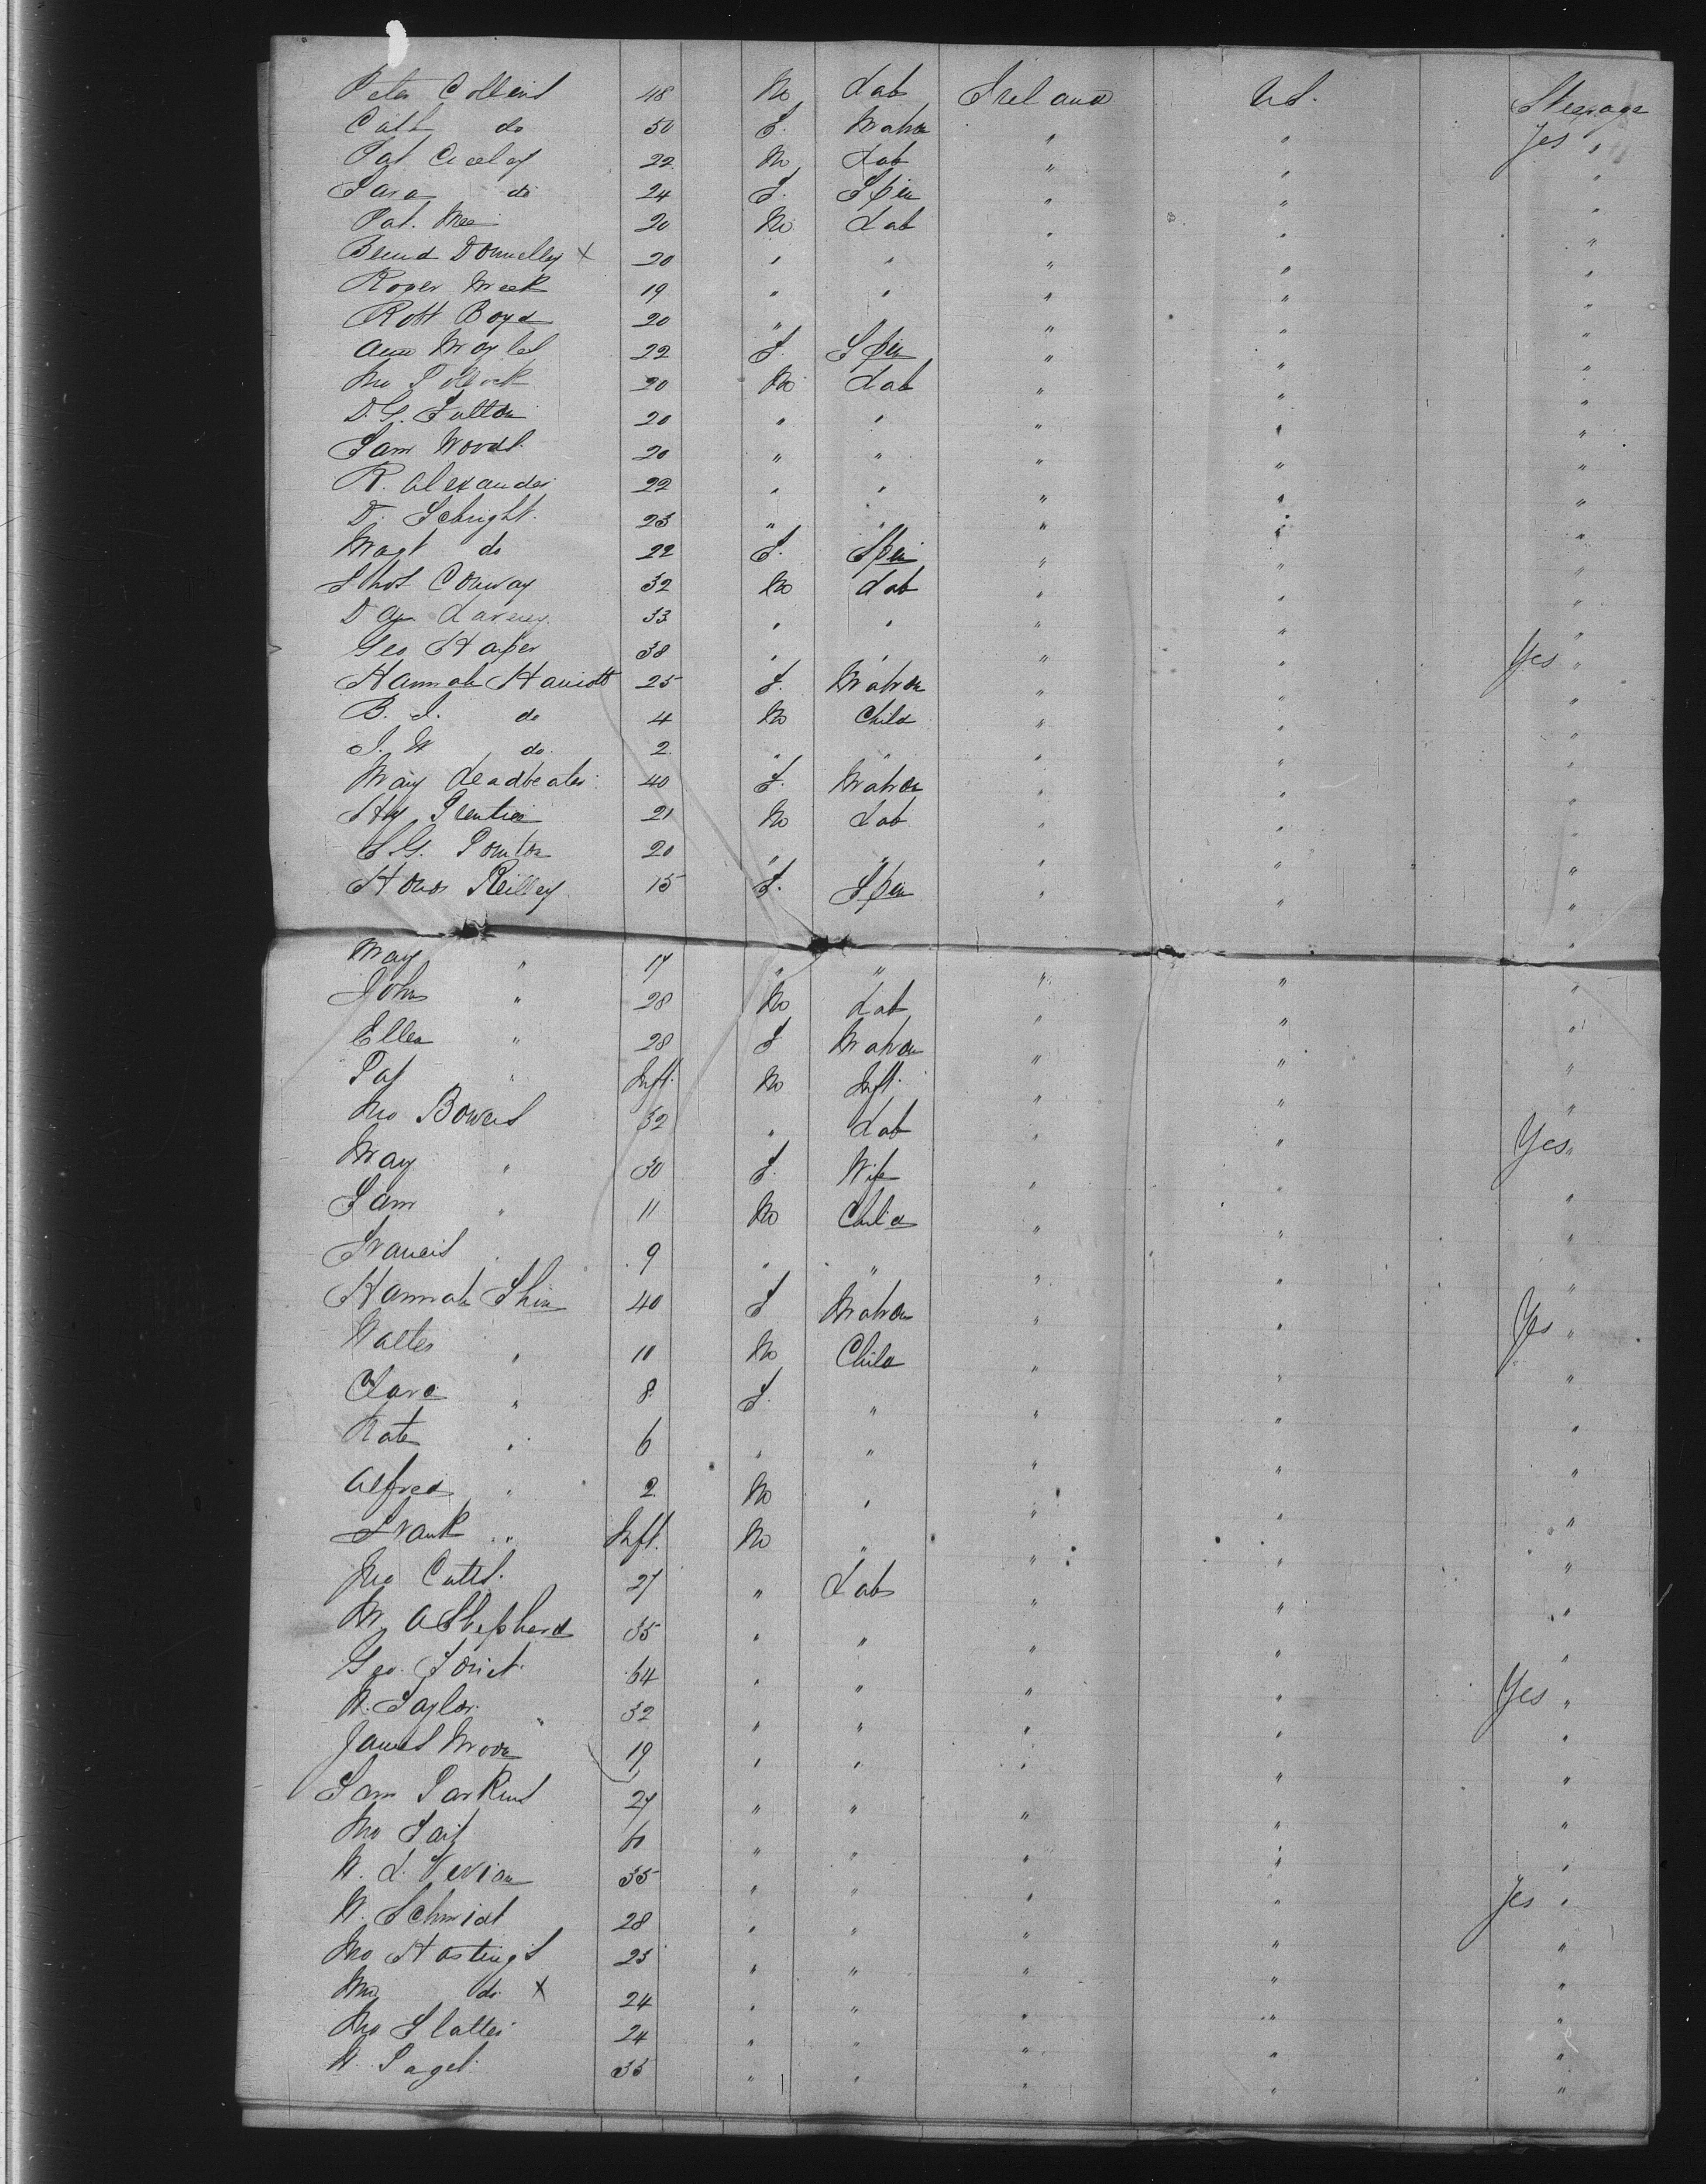 Peter Collins 48 M Lab Ireland U.S. Steerage
Cath do 50 F. Matron " " Yes "
Pat 22 M Lab " " "
Sara do 24 F. Spin " " "
Pat. Mee 20 M Lab " " "
Bernd Donnelly x 20 " " " " "
Roger Meek 19 " " " " "
Robt Boyd 20 " " " " "
Ann 22 F. Spin " " "
Jno Pollock 20 M Lab " " "
D. G. Fulton 20 " " " " "
Sam Woods. 20 " " " " "
R. Alexander 22 " " " " "
D. Sebright. 23 " " " " "
Magt do 22 F. Spin " " "
Thos Conway 32 M Lab " " "
Lavery. 33 " " " " "
Geo Harper 38 " " " " Yes "
Hannah 25 F. Matron " " "
B. do 4 M Child " " "
J. W do. 2 " " " " "
Mary Leadbeater 40 F. Matron " " "
Hy Prentice 21 M Lab " " "
20 " " " " "
Honor Reilley 15 F. Spin " " "
Mary " 17 " " " " "
John " 28 M Lab " " "
Ellen " 28 F Matron " " "
Pat " Inft. M Inft. " " "
Jno Bowers 32 " Lab " " Yes "
Mary " 30 F. Wife " " "
Sam " 11 M Child " " "
Francis " 9 " " " " "
Hannah 40 F Matron " " Yes "
Walter " 10 M Child " " "
Clara " 8 F. " " " "
Kate " 6 " " " " "
Alfred " 2 M " " " "
Frank " Inft. M " " " "
Jno Cutts. 27 " Lab " " "
Shepherd 35 " " " " "
Geo. 64 " " " " Yes "
W. Taylor. 32 " " " " "
James Moon 19 " " " " "
Sam Parkins 27 " " " " "
Jno Tait 60 " " " " "
W. L. Vivian 35 " " " " Yes "
W. Schmidt 28 " " " " "
Jno Hastings 23 " " " " "
Wm do x 24 " " " " "
Jno Slatter 24 " " " " "
W. Paget. 35 " " " " "